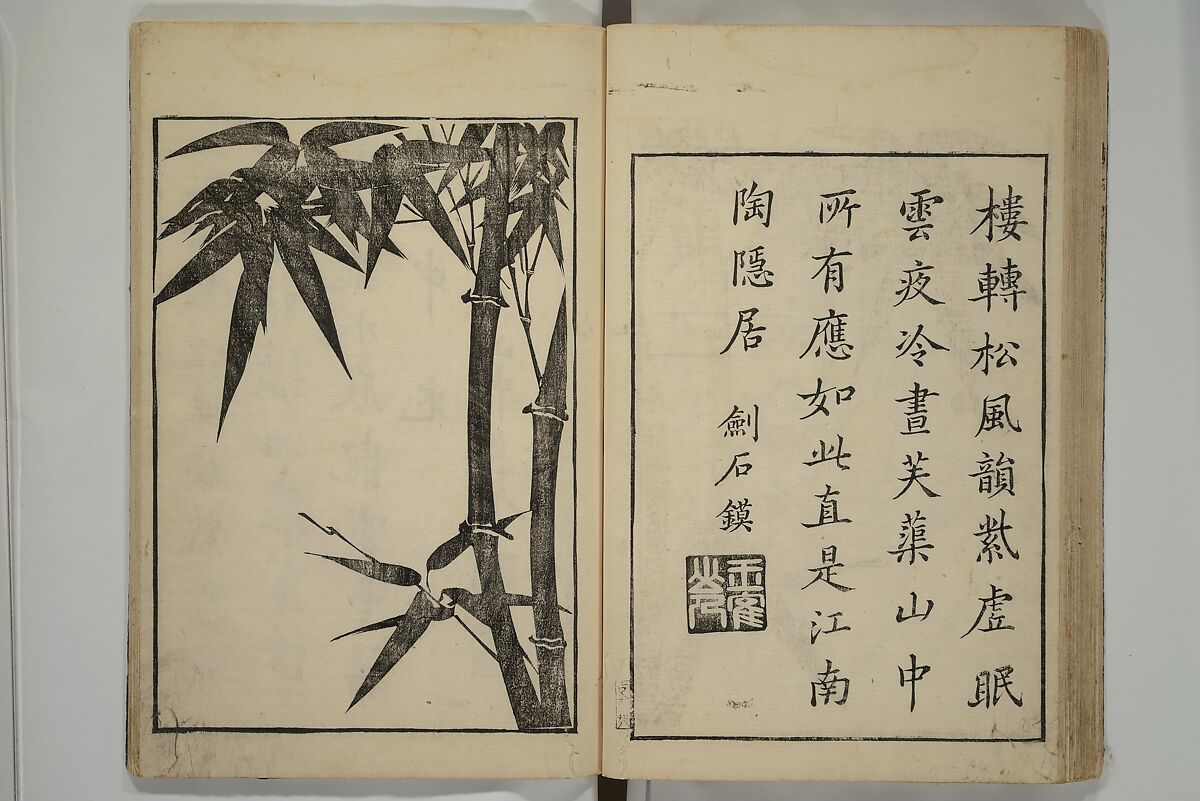 樓轉松風韻紫虛眠
雲夜冷晝芙蕖山中
所有應如此直是江南
陶隱居 劍石鏌